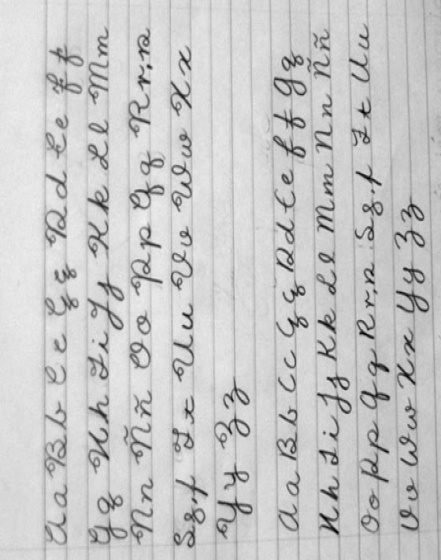 Aa Bb Cc Çç Dd Ee Ff
Gg Hh Ii Jj Kk Ll Mm
Nn Ññ Oo Pp Qq Rr,r
Ss,s Tt Uu Vv Ww Xx
Yy Zz
Aa Bb Cc Çç Dd Ee Ff Gg
Hh Ii Jj Kk Ll Mm Nn Ññ
Oo Pp Qq Rr,r Ss,s Tt Uu
Vv Ww Xx Yy Zz